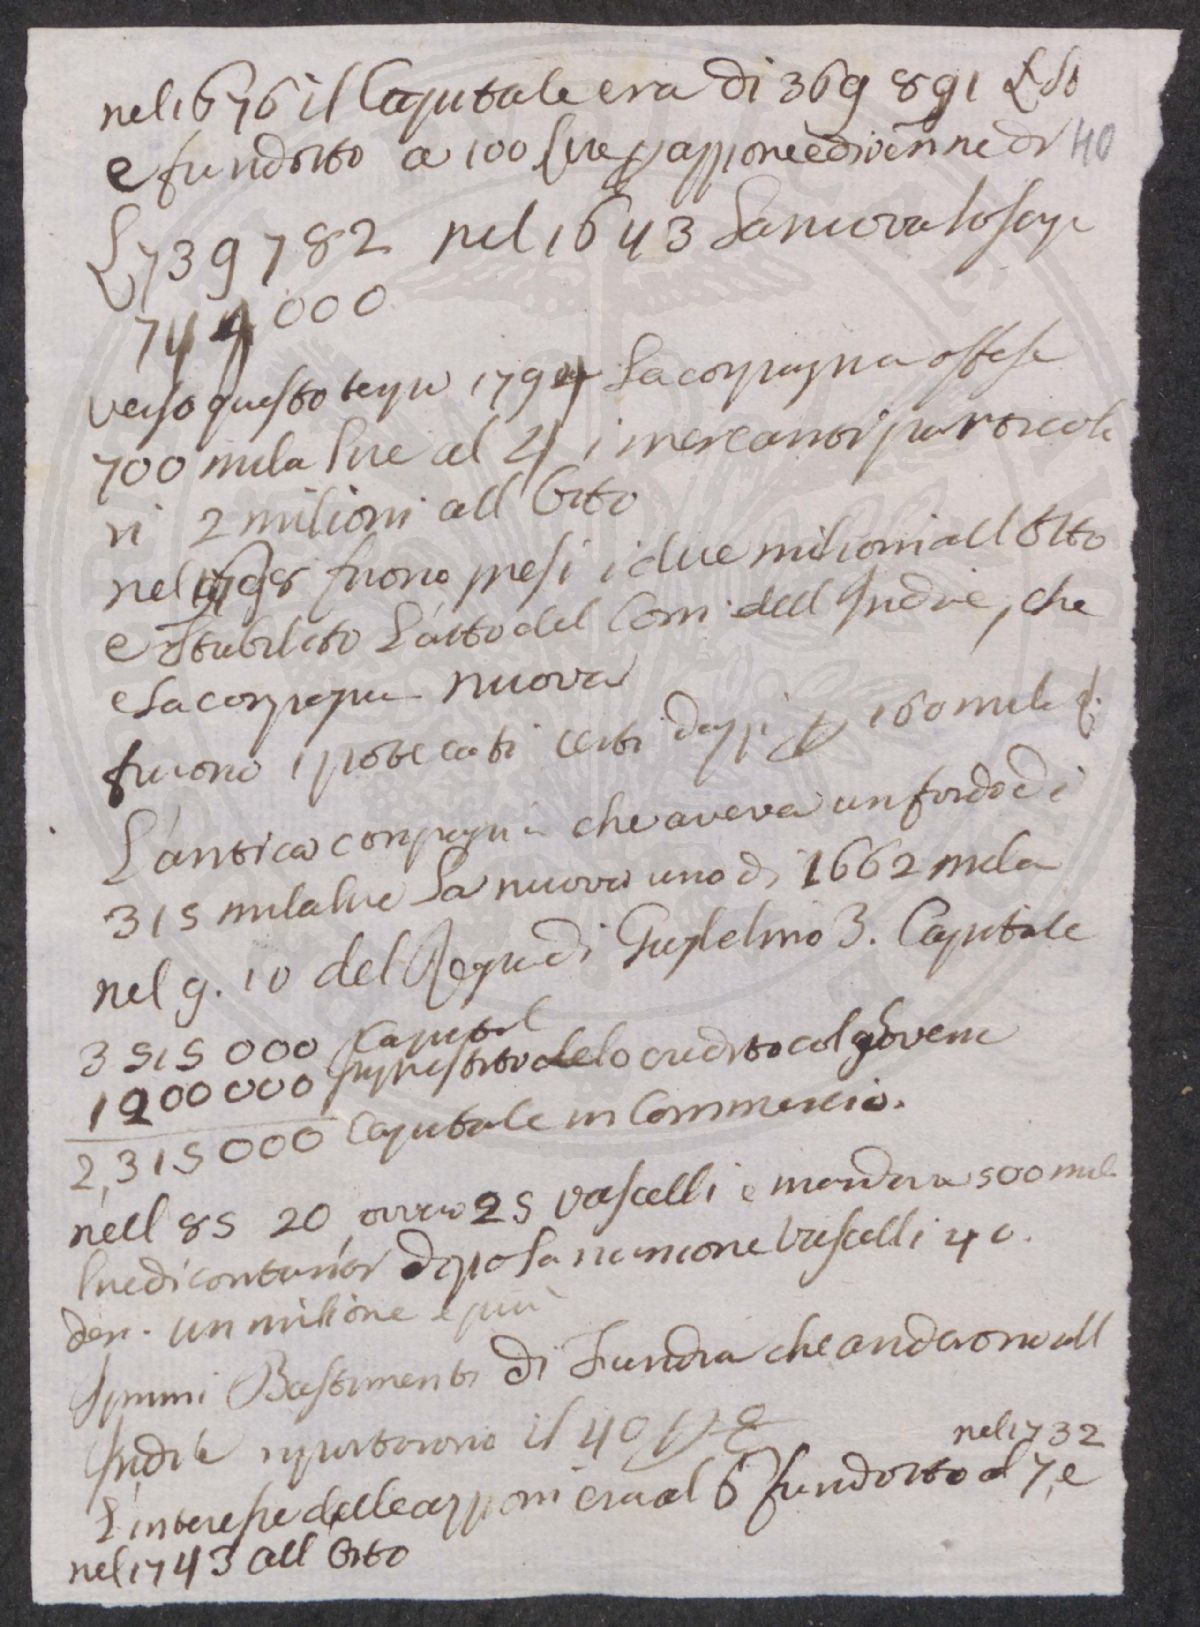 nel 1676 il Capitale era di 369 891 £ 50
e fu ridotto a 100 lire p azzione e divenne di 40
£ 739 782 nel 1643 la nuova lo fece
744 000
verso questo tempo 1794 la compagnia offese
700 mila lire al 4 i mercanti particola
ri 2 milioni all Otto
nel 1698 furono presi i due milioni all Otto
e stabilito l'atto del Com. dell Indie, che
e la compagnia nuova
furono ipotecati certi dazzi p 160 mila £.
L'antica compagnia che aveva un fondo di
315 mila lire la nuova uno di 1662 mila
nel g. 10 del Regno di Guglielmo 3. Capitale
3 515 000 Capital
1200000 imprestito del o credito col governe
2,315000 Capitale in Commercio.
nell 85 20, ovvero 25 vascelli e mandava 500 mila
lire di contanti dopo la riunione Vascelli 40.
den. un milione e più
I primi Bastimenti di Fundra che andarono all
Indie riportarono il 40 p
nel 1732
L'interesse delle azzioni era al 6 fu ridotto al 7, e
nel 1743 all Otto